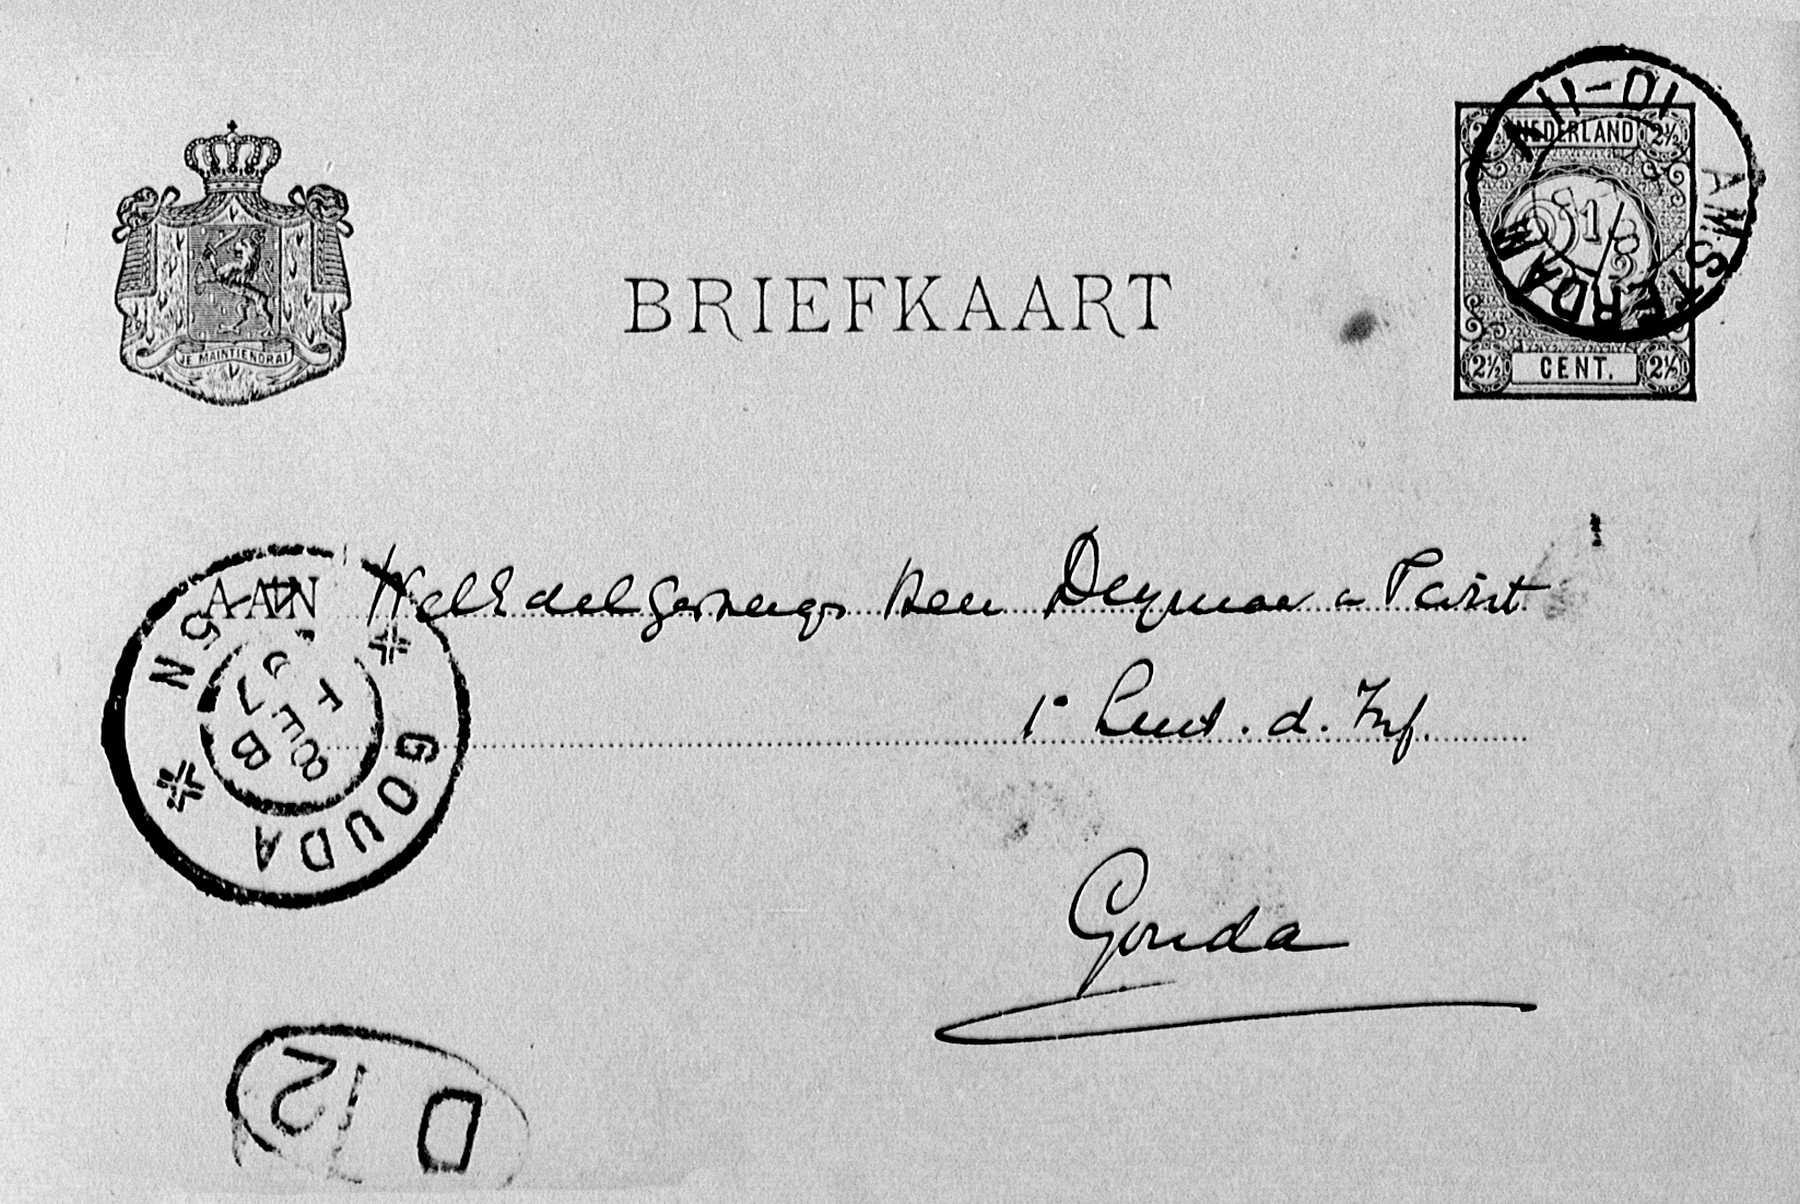 10-11
AMSTERDAM
2½ NEDERLAND 2½
2½ CENT. 2½
JE MAINTIENDRAI
BRIEFKAART
AAN WelEdelgestrenge Heer
1e Luit. d. Inf.
Gouda
GOUDA
FEB
5N
D
12